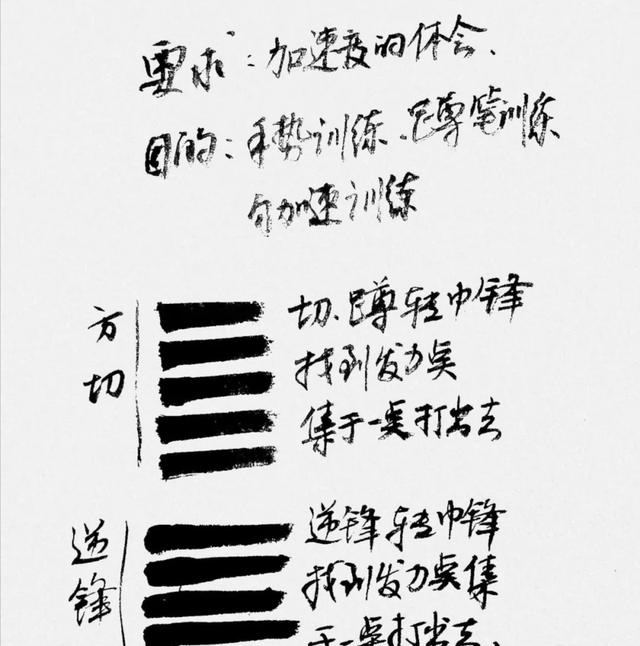 要求:加速度的体会、
目的:手势训练、蹲笔训练
匀加速训练
方切
切、蹲转中锋
找到发力点
集于一点打出去
逆锋
逆锋转中锋
找到发力点集
于一点打出去、